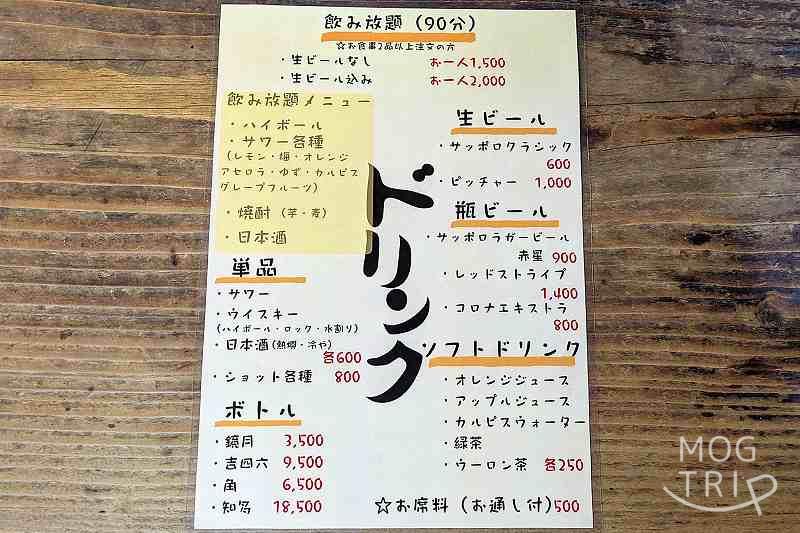 飲み放題（90分）
☆お食事2品以上注文の方
・生ビールなし お一人1,500
・生ビール込み お一人2,000
飲み放題メニュー
・ハイボール
・サワー各種
（レモン・梅・オレンジ
アセロラ・ゆず・カルピス
グレープフルーツ）
・焼酎（芋・麦）
・日本酒
単品
・サワー
・ウイスキー
（ハイボール・ロック・水割り）
・日本酒（熱燗・冷や）
各600
・ショット各種 800
ボトル
・鏡月 3,500
・吉四六 9,500
・角 6,500
・知多 18,500
ドリンク
生ビール
・サッポロクラシック
600
・ピッチャー 1,000
瓶ビール
・サッポロラガービール
赤星 900
・レッドストライプ
1,400
・コロナエキストラ
800
ソフトドリンク
・オレンジジュース
・アップルジュース
・カルピスウォーター
・緑茶
・ウーロン茶 各250
☆お席料（お通し付）500
MOG
TRIP